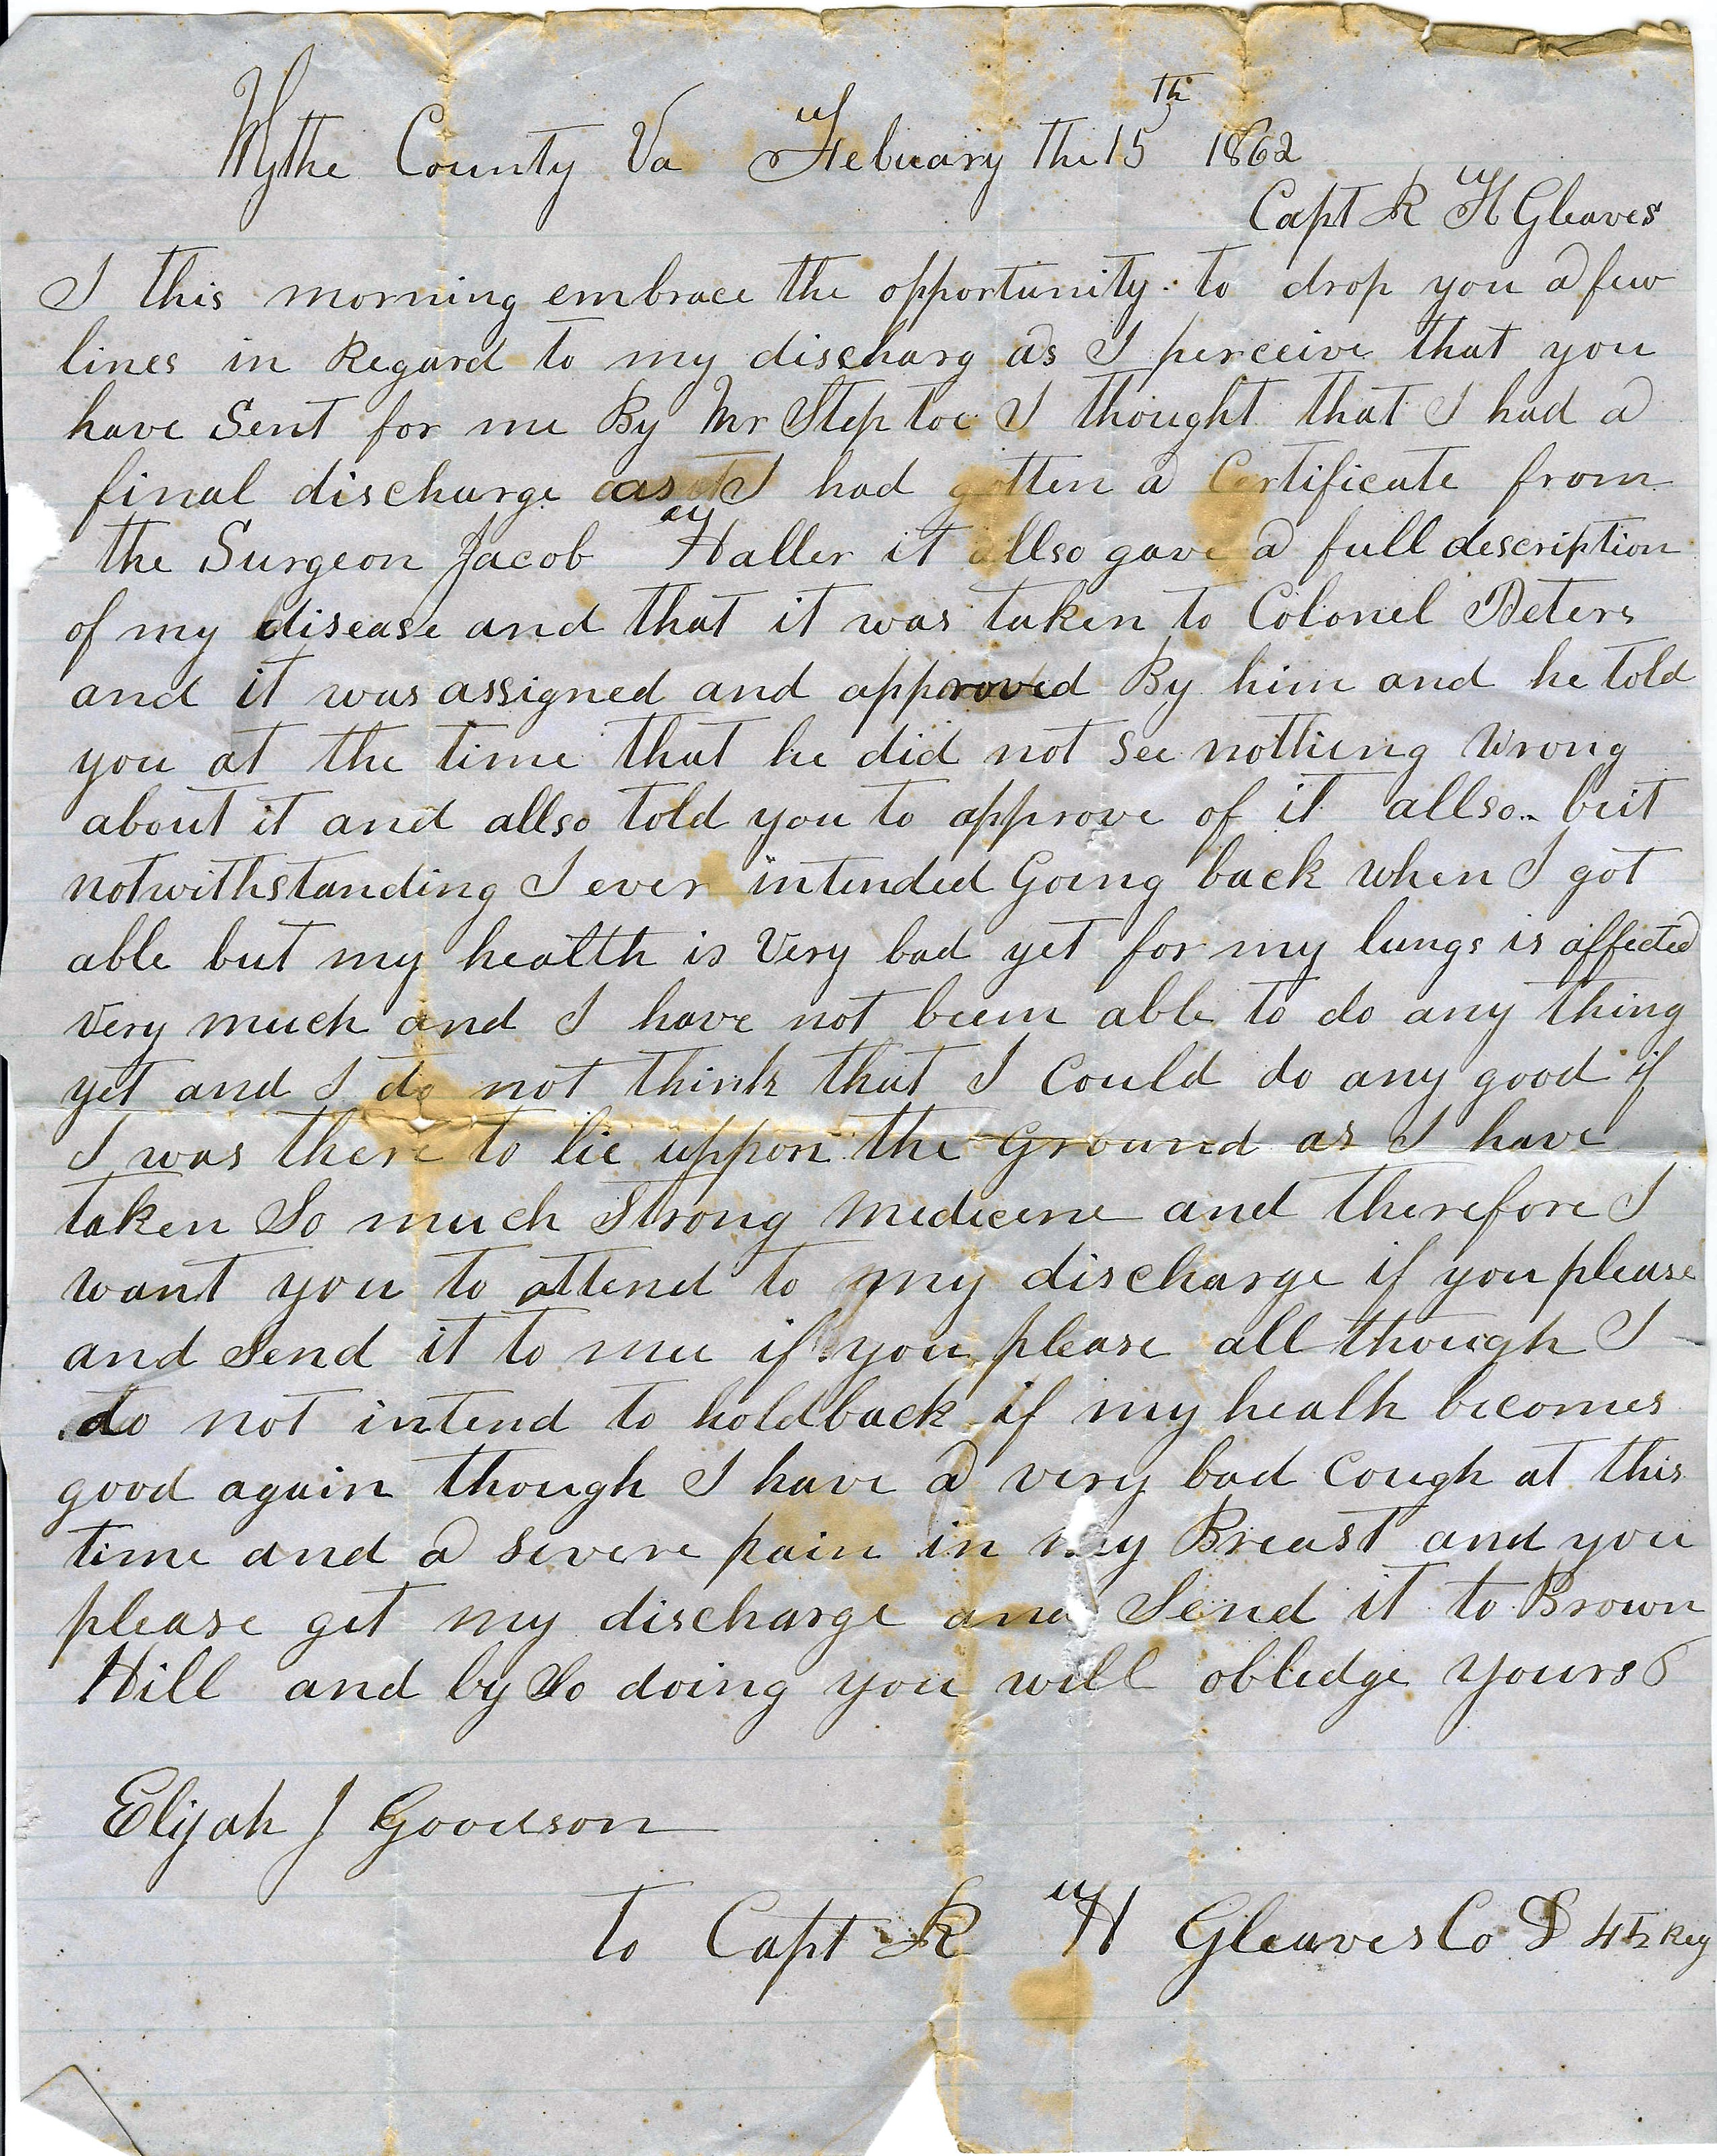 Wythe County Va Febuary the 15th 1862
Capt R H Gleaves
I this morning embrace the opportunity to drop you a few
lines in Regard to my discharg as I perceive that you
have Sent for me By Mr Steptoe I thought that I had a
final discharge as I had gotten a Certificate from
the Surgeon Jacob Haller it allso gave a full description
of my disease and that it was taken to Colonel Peters
and it was assigned and approved By him and he told
you at the time that he did not see nothing Wrong
about it and allso told you to approve of it allso but
notwithstanding I ever intended Going back when I got
able but my health is Very bad yet for my lungs is affected
Very much and I have not been able to do any thing
yet and I do not think that I Could do any good if
I was there to lie uppon the Ground as I have
taken So much Strong Medicene and therefore I
want you to attend to my discharge if you please
and Send it to me if you please all though I
do not intend to hold back if my healh becomes
good again though I have a very bad Cough at this
time and a severe pain in my Breast and you
please get my discharge and Send it to Brown
Hill and by So doing you will obledge yours
Elijah J Goodson
To Capt R H Gleaves Co D 45 Reg